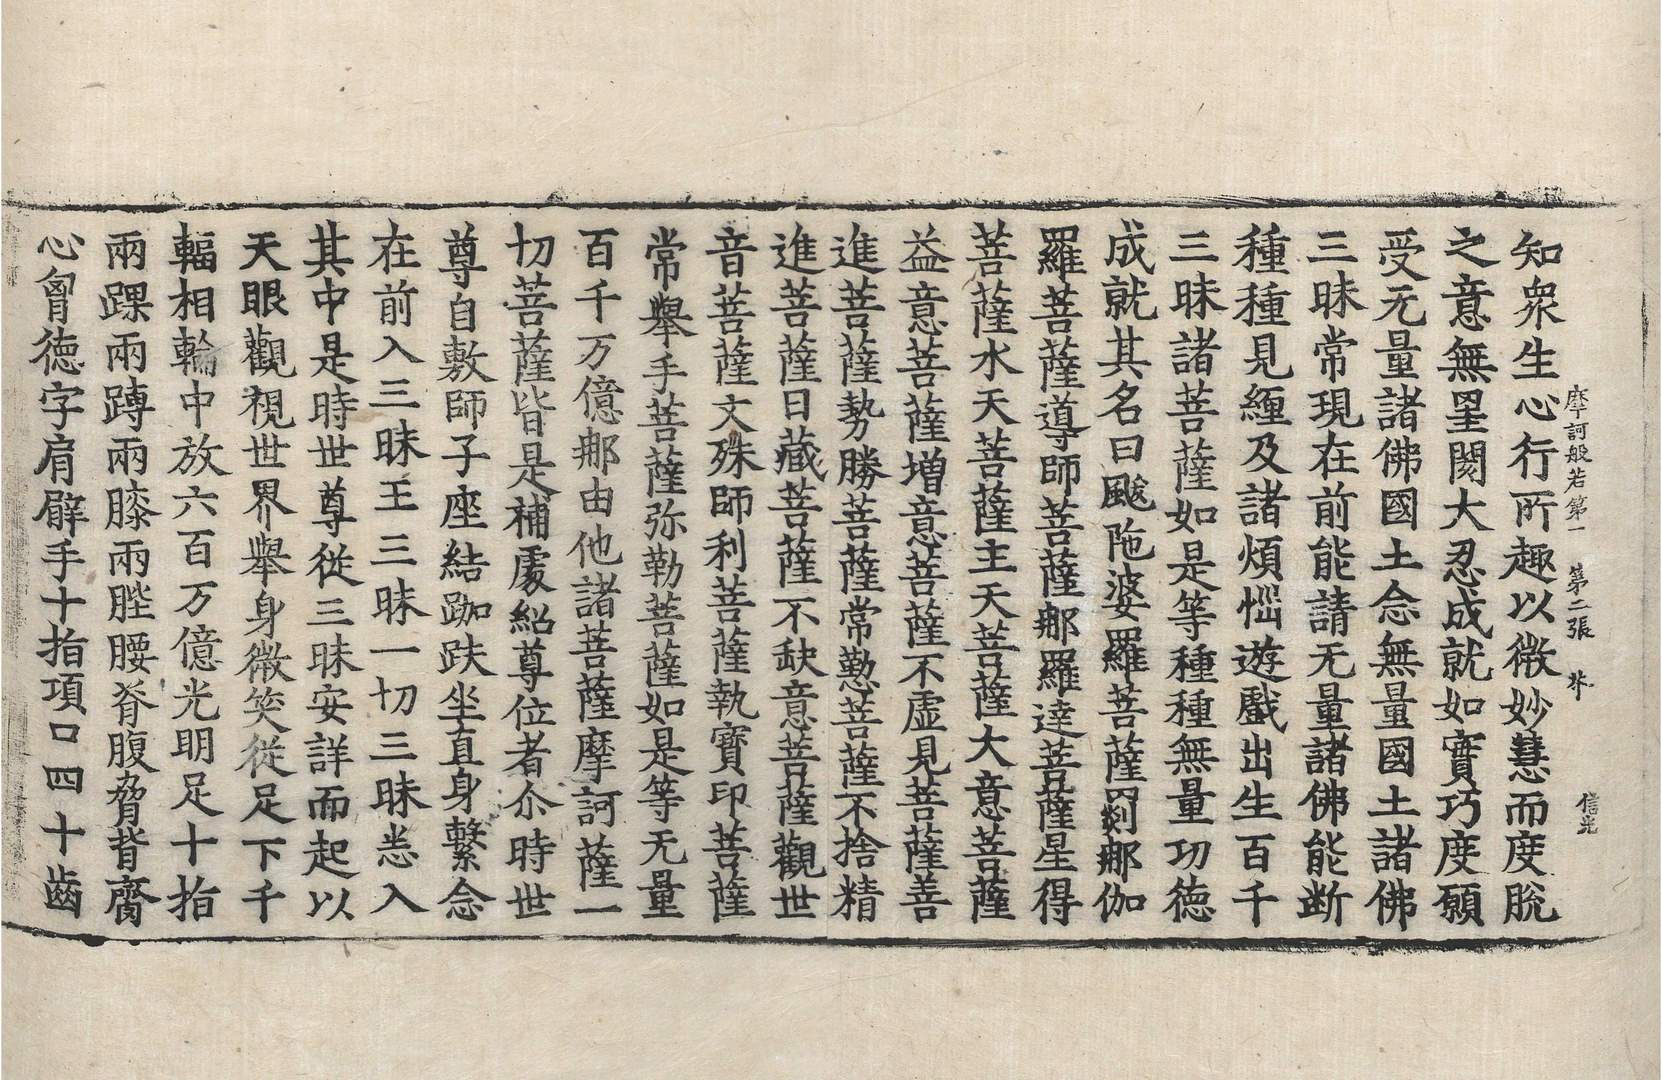 摩訶般若第一 第二張 芥 信光
知衆生心行所趣以微妙慧而度脫
之意無罣閡大忍成就如實巧度願
受无量諸佛國土念無量國土諸佛
三昧常現在前能請无量諸佛能断
種種見纏及諸煩惱遊戲出生百千
三昧諸菩薩如是等種種無量功德
成就其名曰颰陁婆羅菩薩罽那伽
羅菩薩導師菩薩那羅達菩薩星得
菩薩水天菩薩主天菩薩大意菩薩
益意菩薩增意菩薩不虛見菩薩善
進菩薩勢勝菩薩常懃菩薩不捨精
進菩薩日藏菩薩不缺意菩薩觀世
音菩薩文殊師利菩薩執寶印菩薩
常舉手菩薩弥勒菩薩如是等无量
百千万億那由他諸菩薩摩訶薩一
切菩薩皆是補處紹尊位者尒時世
尊自敷師子座結跏趺坐直身繫念
在前入三昧王三昧一切三昧悉入
其中是時世尊從三昧安詳而起以
天眼觀視世界舉身微笑從足下千
輻相輪中放六百万億光明足十指
兩踝兩䏝兩膝兩髀腰脊腹脅背臍
心𦙄德字肩臂手十指項口四十齒